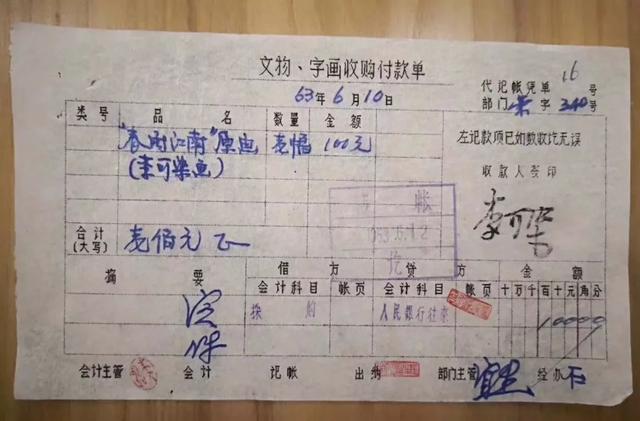 文物、字画收购付款单
63年6月10日
代记帐凭单 16号
部门 荣字 340号
类号 品名 数量 金额
"春雨江南"原画 壹幅 100元
(李可染画)
左记款项已如数收讫无误
收款人签印
李可染
合计(大写) 壹佰元正
摘要 借方 贷方 金额
会计科目 帐页 会计科目 帐页 十万千百十元角分
采购 人民银行往来 10000
会计主管 会计 记帐 出纳 部门主管 经办